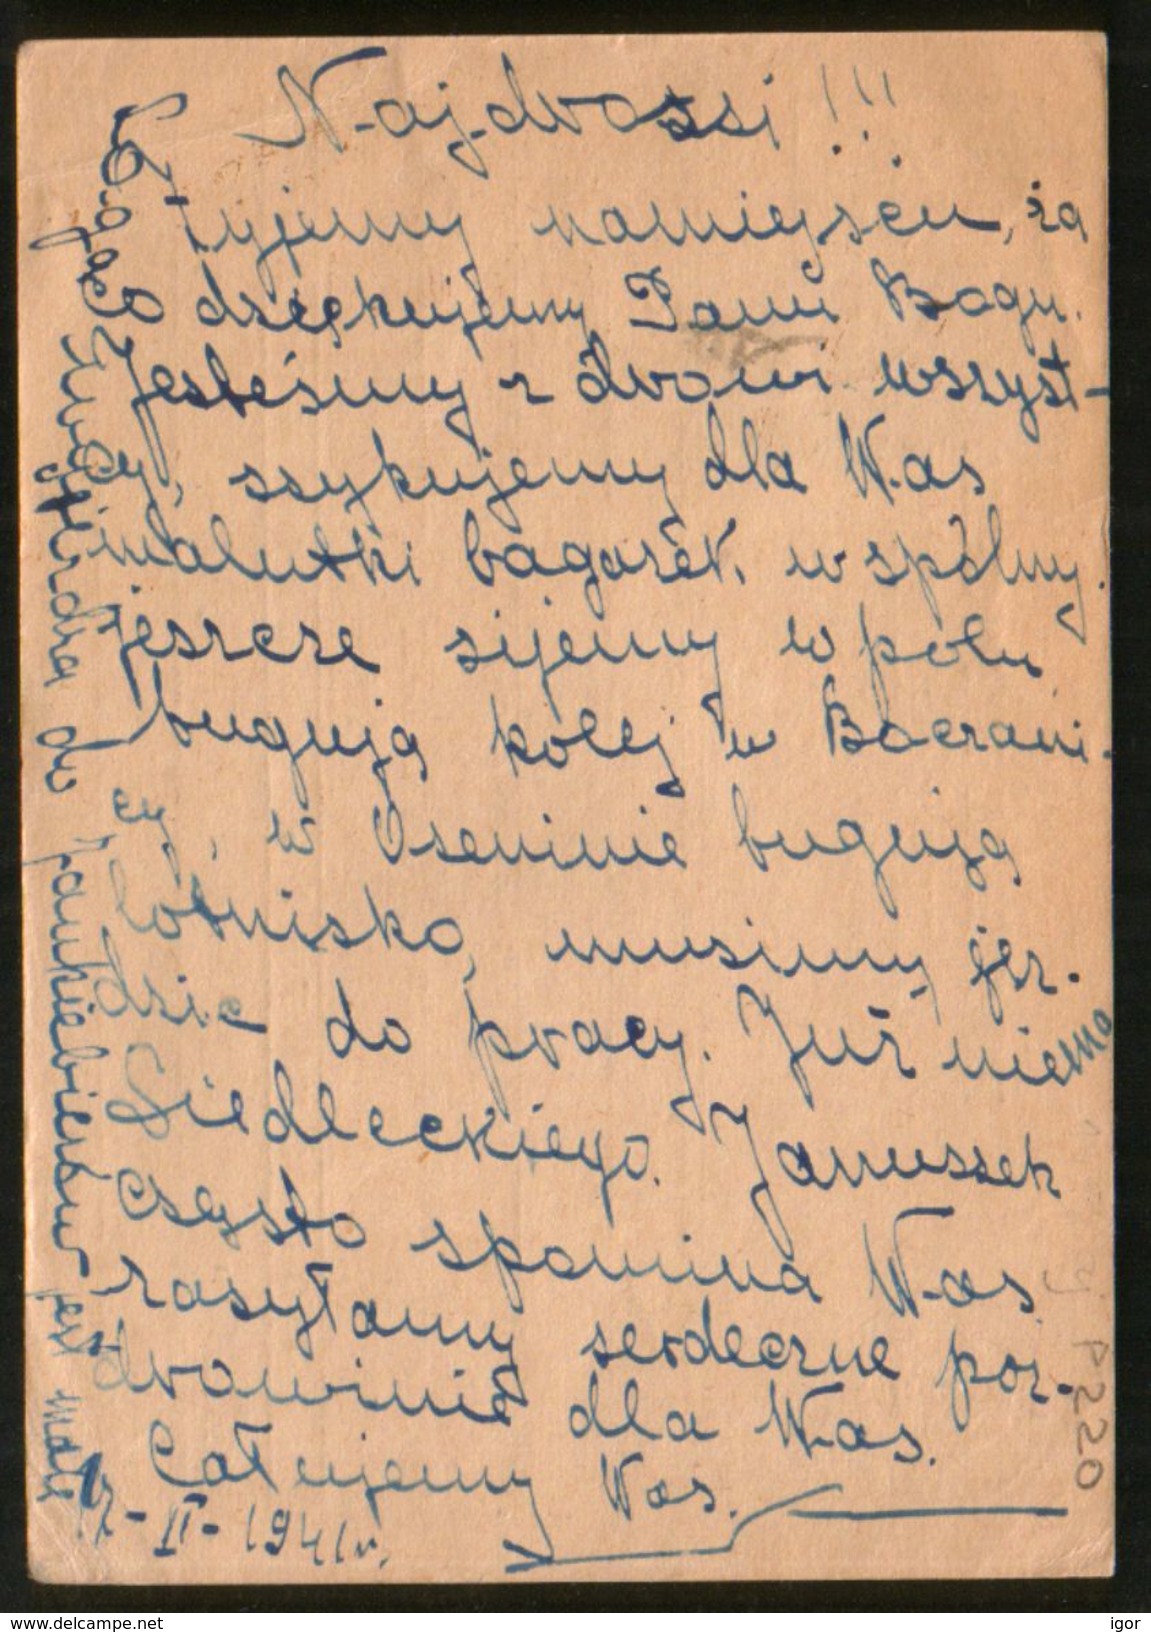 Najdrossi!!!
Żyjemy namiejscu, za
co dziękujemy Panu Bogu.
Jesteśmy zdrowi wszyst-
cy, szykujemy dla Was
malutki bagarzek, wspólny.
jeszcze sijemy w polu
bugują kolej w Boczani-
cy, w Oseninie bugują
lotnisko, musimy jez-
dzic do pracy. Już niema
Siedleckiego. Januszek
czysto spomina Was
zasyłamy serdeczne poz-
drowinie dla Was.
Całujemy Was.
12-II-1941r.
jezdza do
jest
P220
delcampe.net
igor